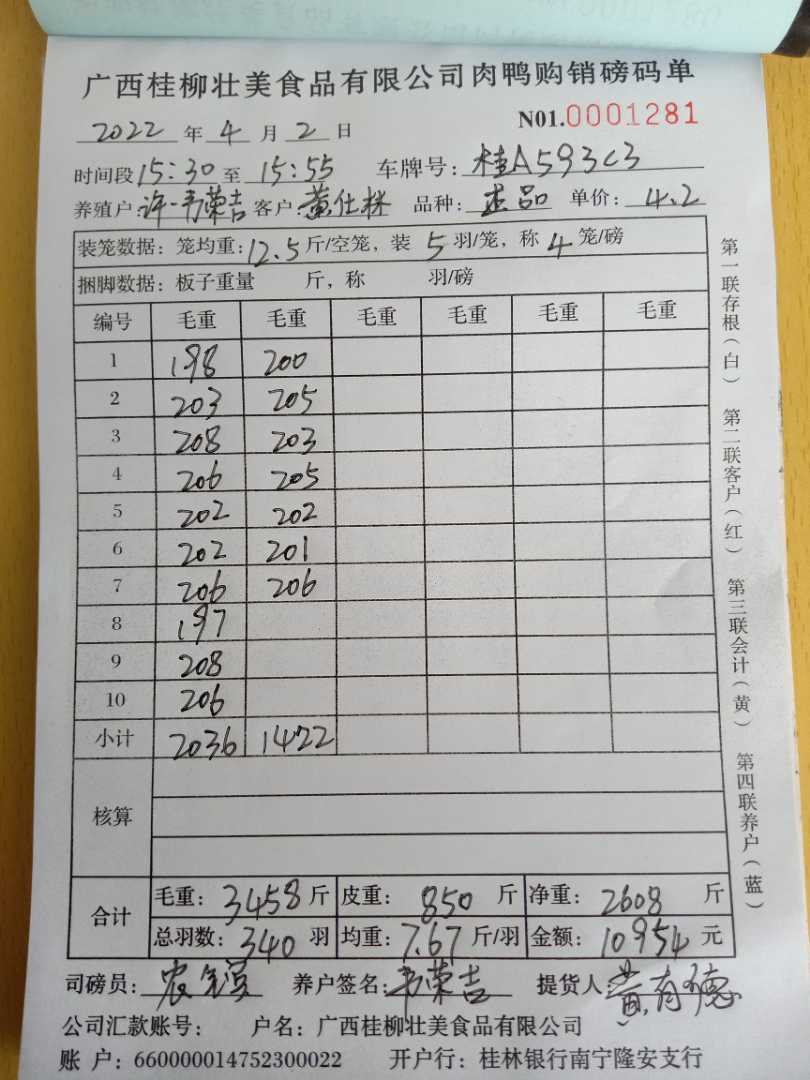 广西桂柳壮美食品有限公司肉鸭购销磅码单
N01.0001281
2022 年 4 月 2 日
时间段 15:30 至 15:55 车牌号: 桂A593C3
养殖户: 许一韦荣吉 客户: 黄仕林 品种: 正品 单价: 4.2
装笼数据: 笼均重: 12.5 斤/空笼, 装 5 羽/笼, 称 4 笼/磅
捆脚数据: 板子重量 斤, 称 羽/磅
编号 毛重 毛重 毛重 毛重 毛重 毛重
1 198 200
2 203 205
3 208 203
4 206 205
5 202 202
6 202 201
7 206 206
8 197
9 208
10 206
小计 2036 1422
核算
合计 毛重: 3458 斤 皮重: 850 斤 净重: 2608 斤
总羽数: 340 羽 均重: 7.67 斤/羽 金额: 10954 元
司磅员: 农 养户签名: 韦荣吉 提货人: 黄有德
公司汇款账号: 户名: 广西桂柳壮美食品有限公司
账 户: 660000014752300022 开户行: 桂林银行南宁隆安支行
第一联存根(白) 第二联客户(红) 第三联会计(黄) 第四联养户(蓝)